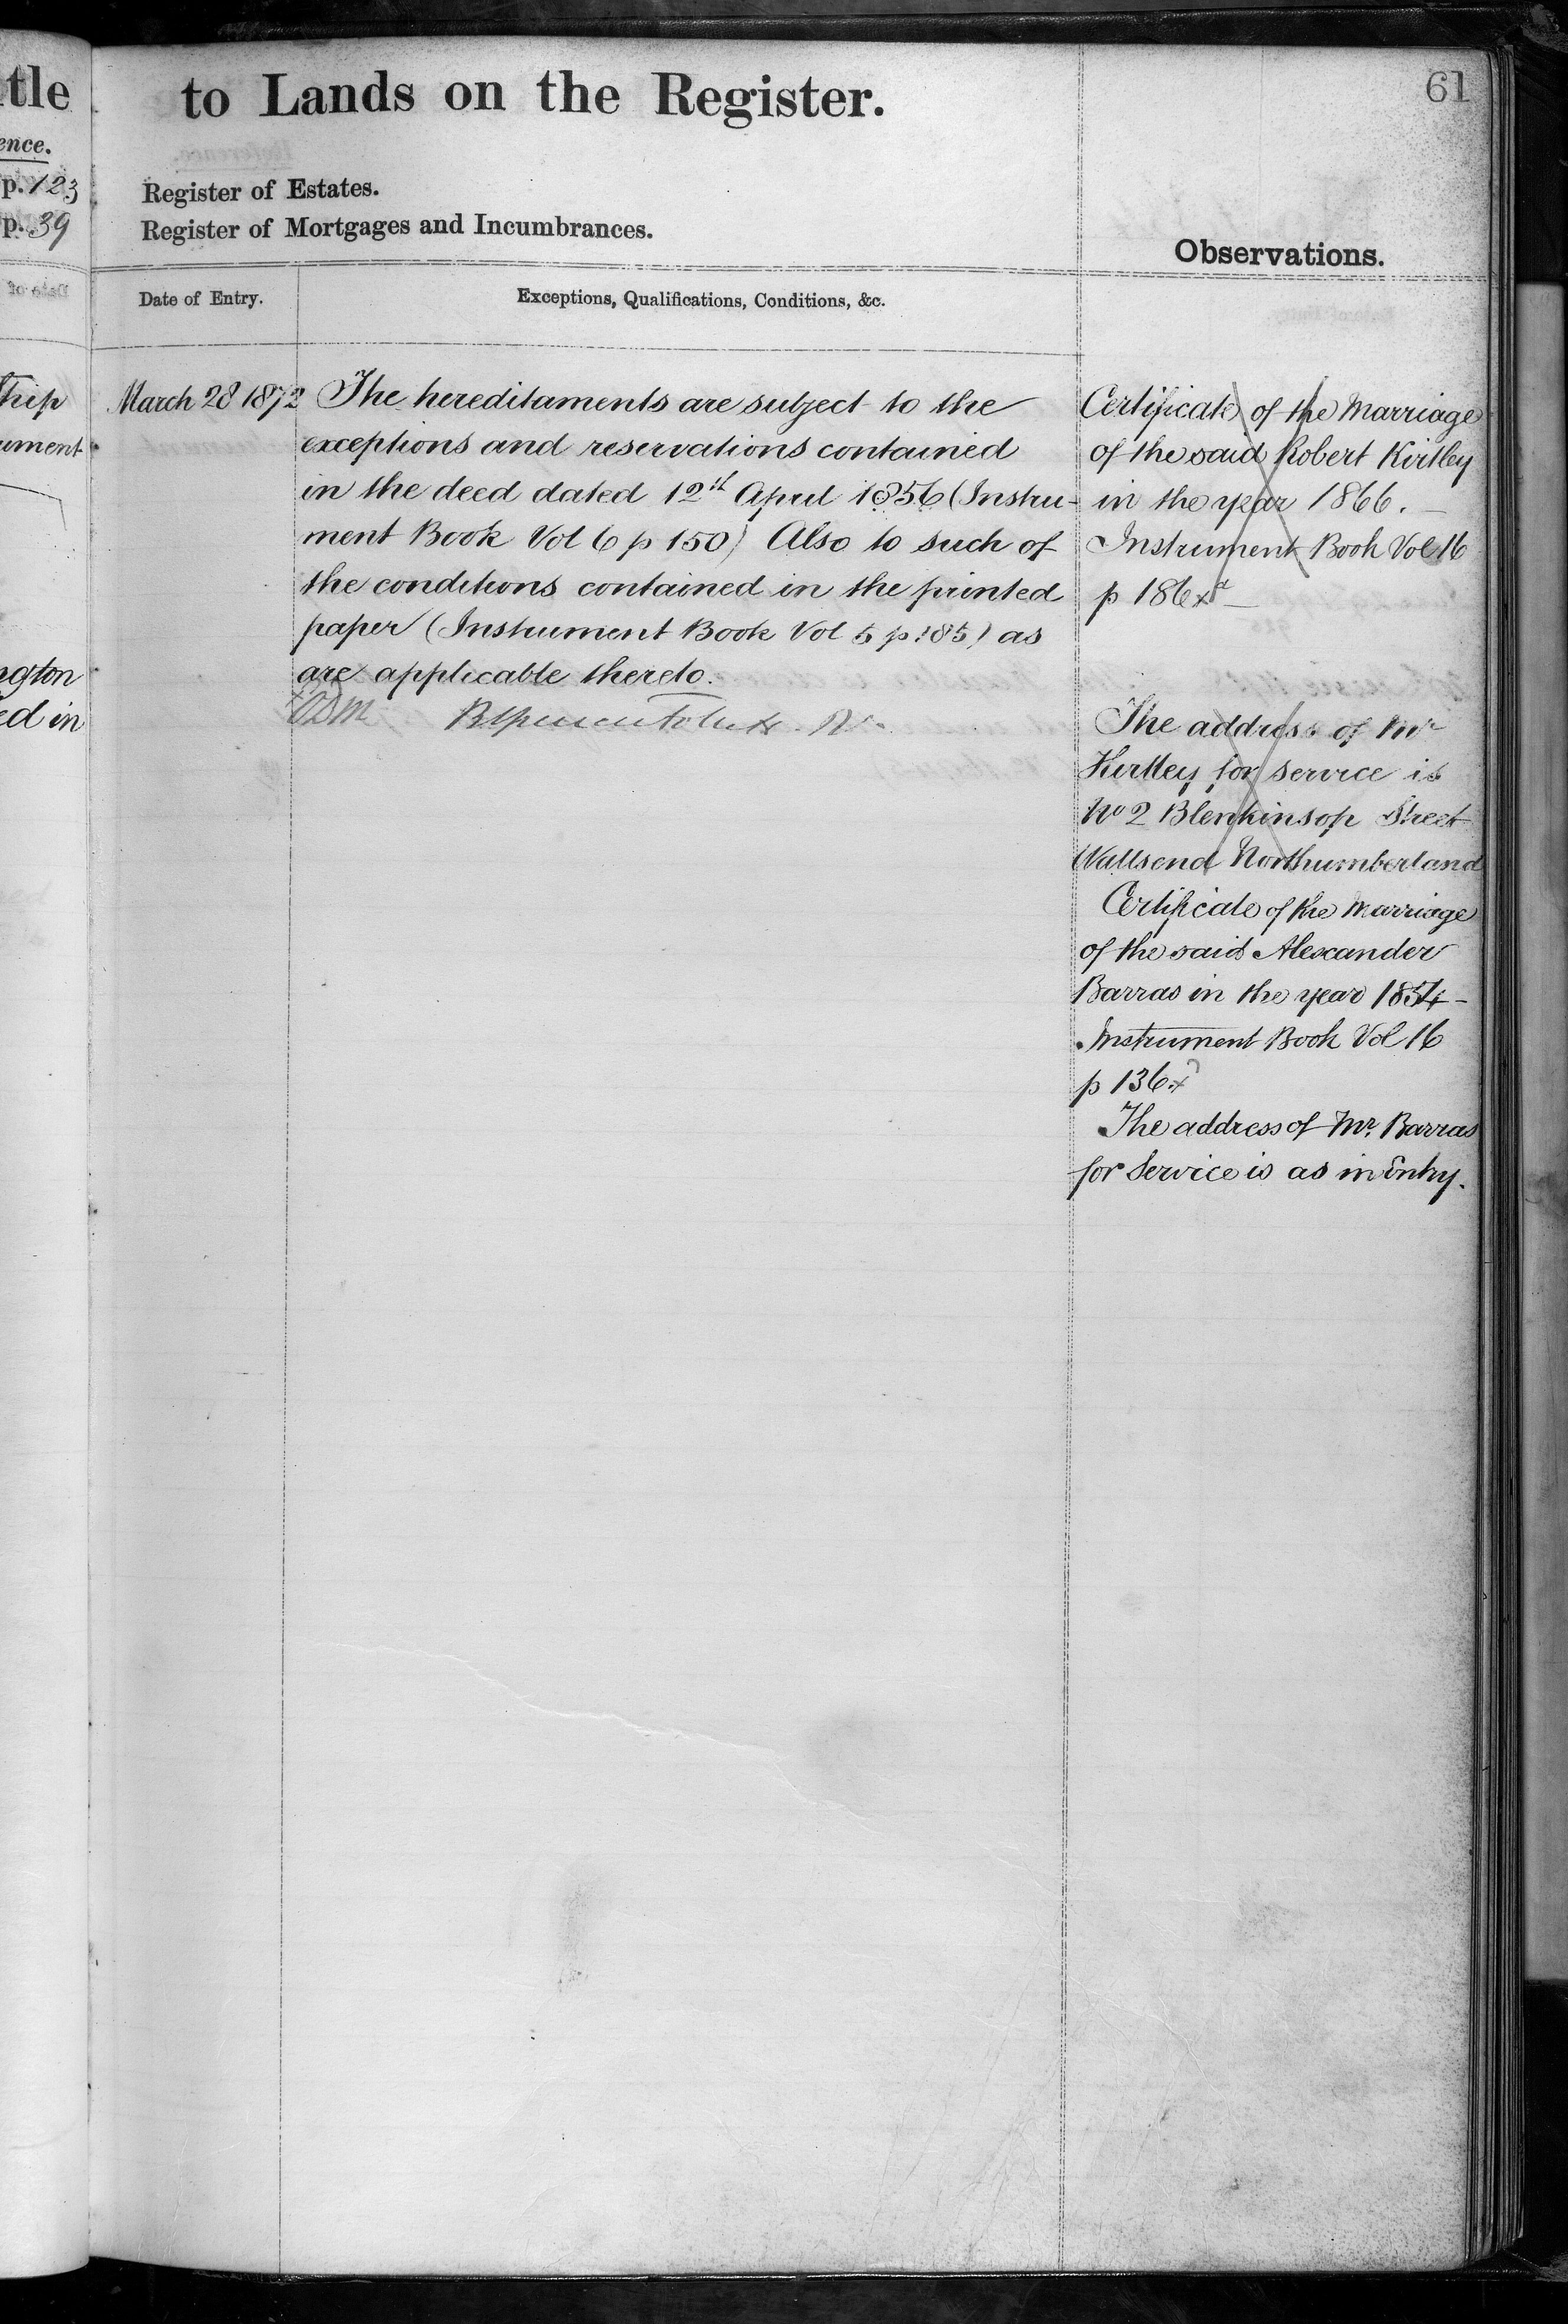 tle
ence.
p. 123
p. 39
ument
ngton
ed in
61
to Lands on the Register.
Register of Estates.
Register of Mortgages and Incumbrances.
Date of Entry.
Exceptions, Qualifications, Conditions, &c.
March 28 1872
The hereditaments are subject to the
exceptions and reservations contained
in the deed dated 12th April 1856 (Instru-
ment Book Vol 6 p 150) Also to such of
the conditions contained in the printed
paper (Instrument Book Vol 5 p 185) as
are applicable thereto.
Observations.
Certificate of the Marriage
of the said Robert Kirtley
in the year 1866. —
Instrument Book Vol 16
p 186
The address of Mr
Kirtley for service is
No 2 Blenkinsop Street
Wallsend Northumberland
Certificate of the Marriage
of the said Alexander
Barras in the year 1854 –
Instrument Book Vol 16
p 136
The address of Mr. Barras
for Service is as in Entry.